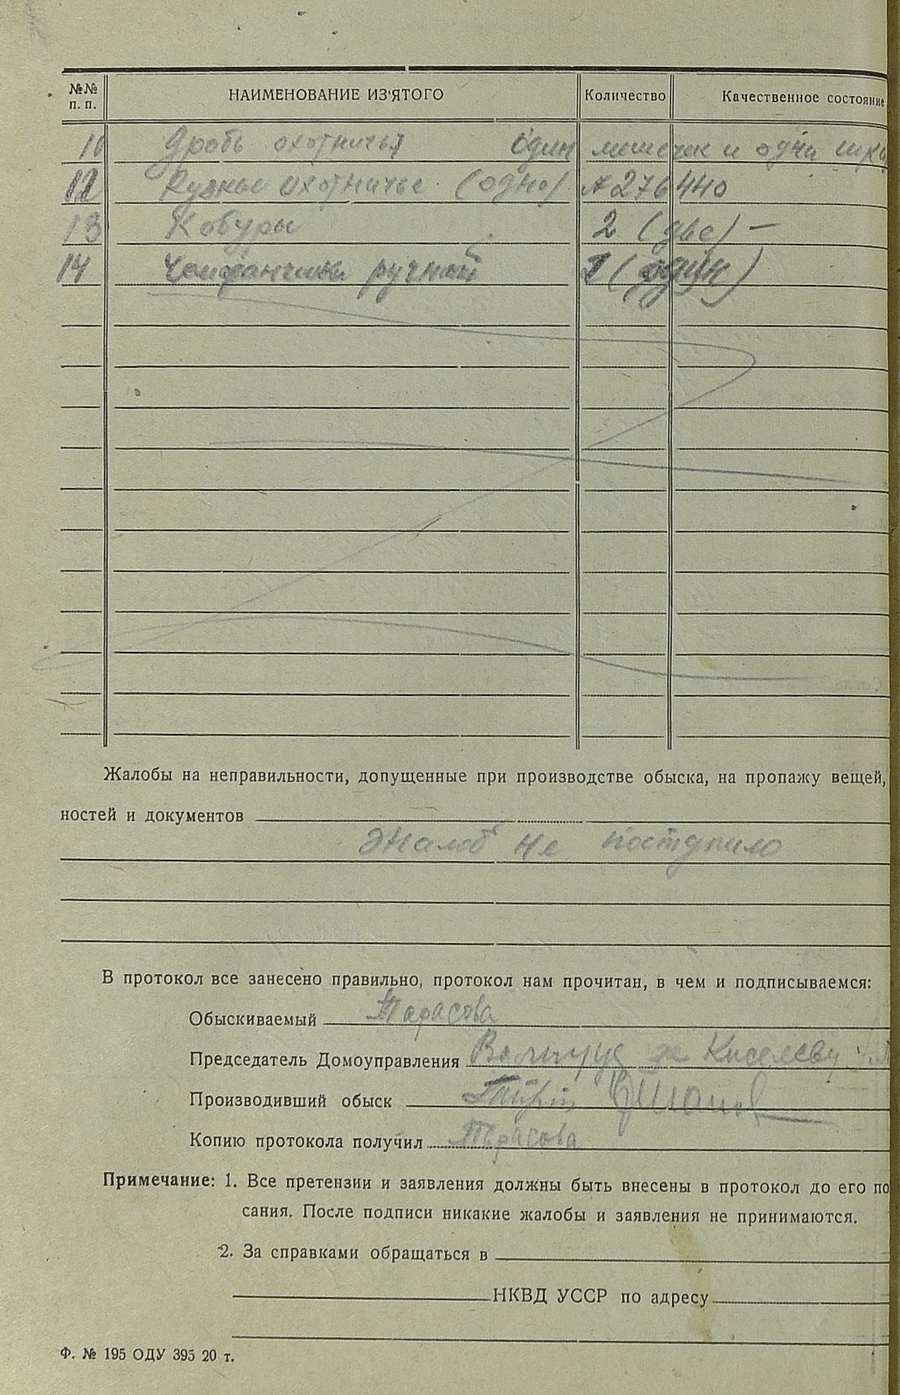 №№ п. п. НАИМЕНОВАНИЕ ИЗ'ЯТОГО Количество Качественное состояние
Дробь охотничья один мешочек и одна
12 Ружье охотничье (одно) № 276440
13 Кобуры 2 (две) —
14 Чемоданчик ручной 1 (один)
Жалобы на неправильности, допущенные при производстве обыска, на пропажу вещей,
ностей и документов
Жалоб не поступило
В протокол все занесено правильно, протокол нам прочитан, в чем и подписываемся:
Обыскиваемый Тарасова
Председатель Домоуправления
Производивший обыск
Копию протокола получил Тарасова
Примечание: 1. Все претензии и заявления должны быть внесены в протокол до его по
сания. После подписи никакие жалобы и заявления не принимаются.
2. За справками обращаться в
НКВД УССР по адресу
Ф. № 195 ОДУ 395 20 т.